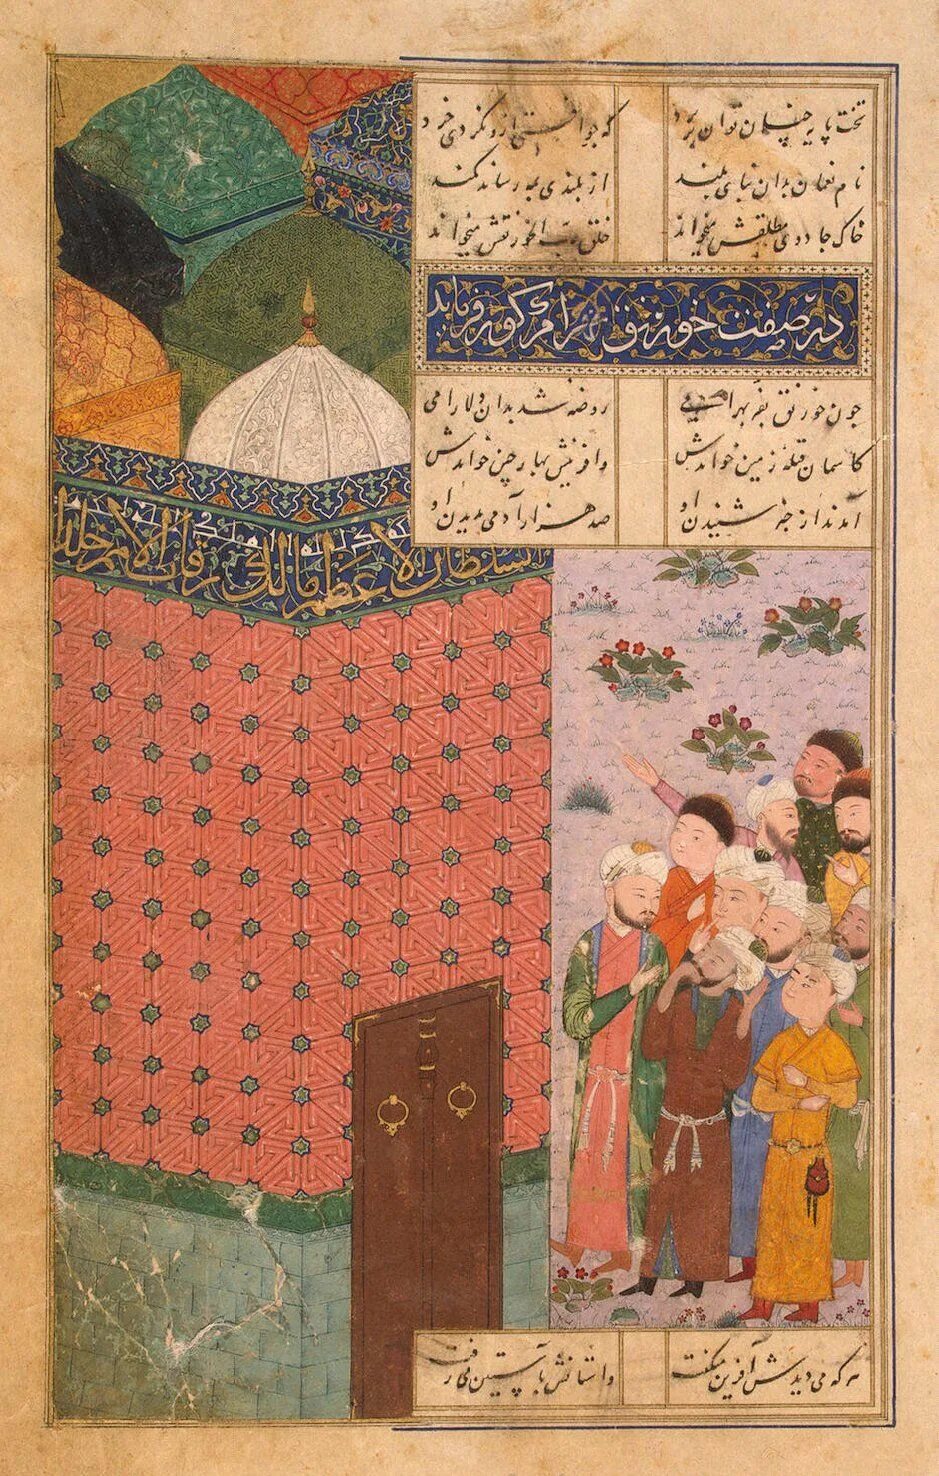 تخت پایه چنان توان برد که جو افتی ازو نگردی خرد
نام نعمان بدان بنای بلند از بلندی به رساند کمند
خاک جادوی مطلقش میخواند خلق رب الخورنقش میخواند
در صفت خورنق بهرام گور فرماید
چون خورنق بفر بهرامی روضه شد بدان دلارامی
کاسمان قبله زمین خواندش وافرینش بهار چین خواندش
آمدند از خبر شنیدن او صد هزار آدمی بدیدن او
السلطان الاعظم مالک رقاب الامم
هر که می دیدش آفرین میگفت واستانش باستین میرفت